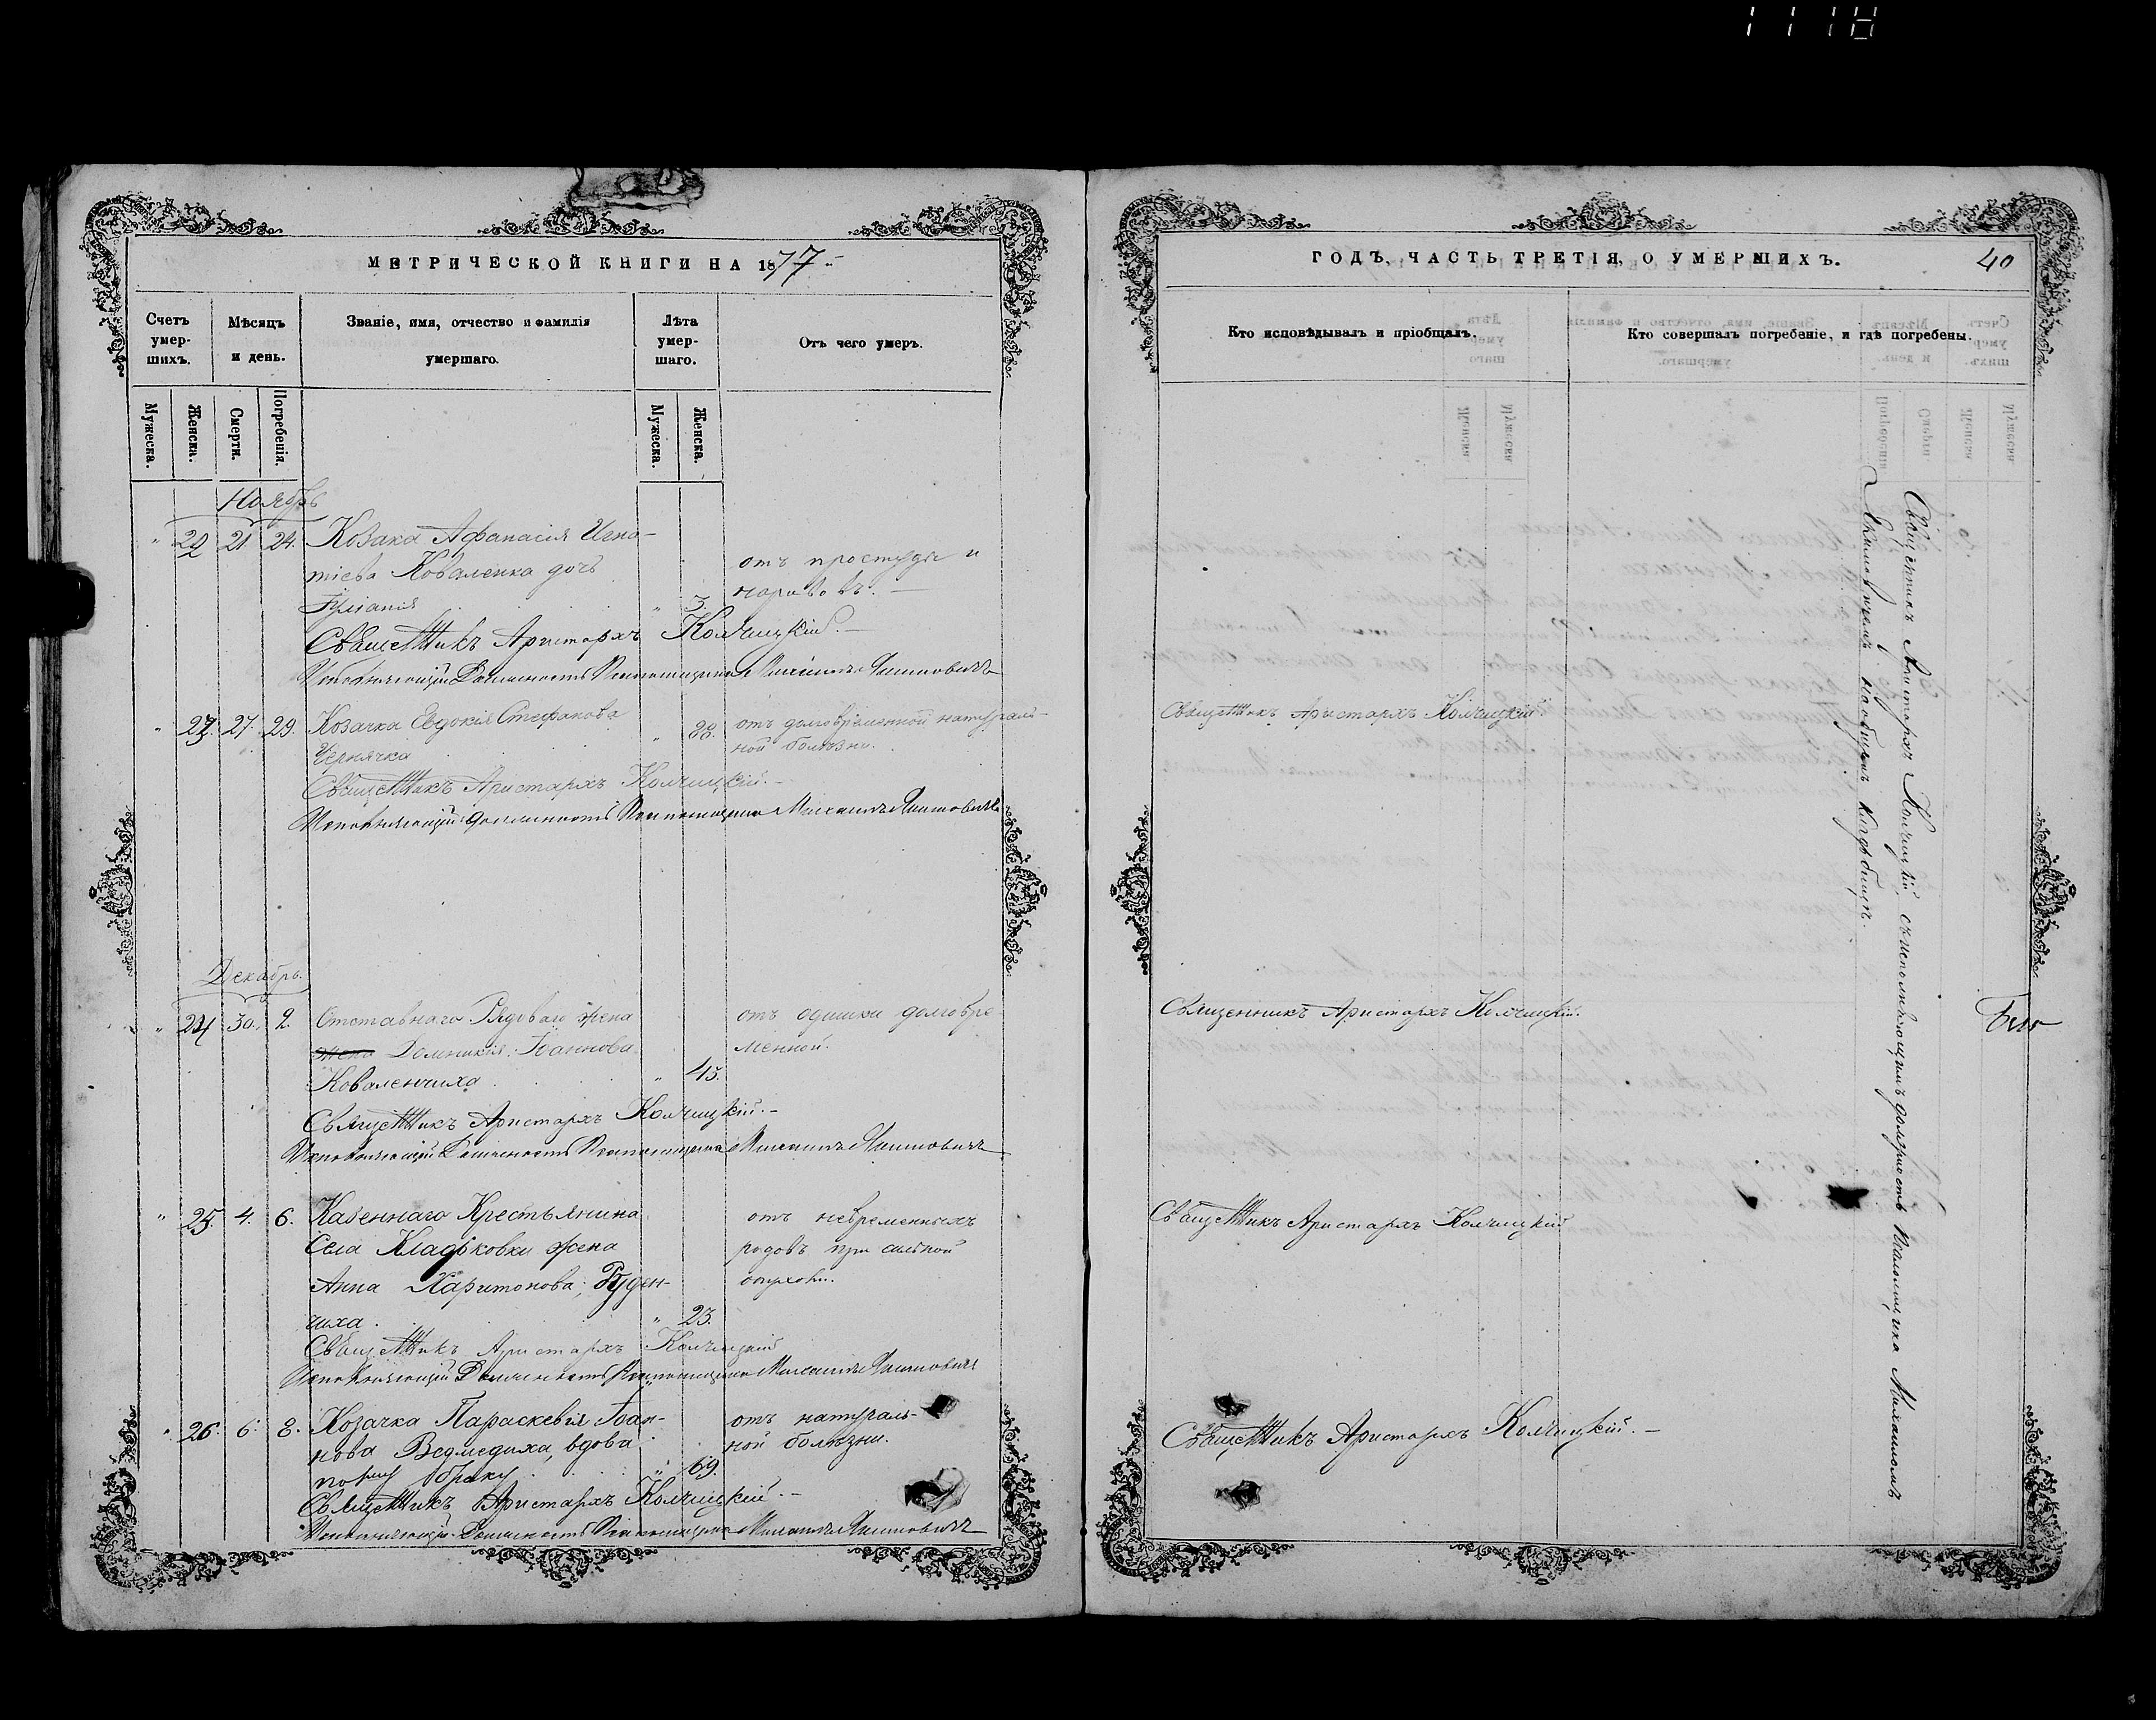 1118
МЕТРИЧЕСКОЙ КНИГИ НА 1877
Счетъ умер-шихъ.
Мѣсяцъ и день.
Званіе, имя, отчество и фамилія умершаго.
Лѣта умер-шаго.
Отъ чего умеръ.
Мужеска.
Женска.
Смерти.
Погребенія.
Мужеска.
Женска.
Ноябрь
" 22 21. 24. Козака Афанасія Игна-
тіева Коваленка дочь
Іуліанія " 3.
отъ простуды и
нарывовъ. —
Священникъ Аристархъ Колчицкій. —
Исполняющій Должность Псаломщика Михаилъ
" 23. 27. 29. Козачка Евдокія Стефанова
Чернячка " 88.
отъ долговременной натураль-
ной болѣзни.
Священникъ Аристархъ Колчицкій. —
Исполняющій должность Псаломщика Михаилъ
Декабрь.
" 24 30. 2. Отставнаго Рядоваго жена
жена Домникія Іоаннова
Коваленчиха " 45.
отъ одышки долговре-
менной.
Священникъ Аристархъ Колчицкій. —
Исполняющій Должность Псаломщика Михаилъ
" 25. 4. 6. Казеннаго Крестьянина
Села Кладьковки жена
Анна Харитонова, Руден-
чиха. " 23.
отъ невременныхъ
родовъ при сильной
опухоли.
Священникъ Аристархъ Колчицкій
Исполняющій Должность Псаломщика Михаилъ
" 26. 6. 8. Козачка Параскевія Іоан-
нова Ведмедиха, вдова
по браку " 69.
отъ натураль-
ной болѣзни.
Священникъ Аристархъ Колчицкій. —
Исполняющій Должность Псаломщика Михаилъ
ГОДЪ, ЧАСТЬ ТРЕТІЯ, О УМЕРШИХЪ.
40
Кто исповѣдывалъ и пріобщалъ.
Кто совершалъ погребеніе, и гдѣ погребены.
Священникъ Аристархъ Колчицкій
Священникъ Аристархъ Колчицкій.
Священникъ Аристархъ Колчицкій
Священникъ Аристархъ Колчицкій. —
Священникъ Аристархъ Колчицкій, съ исполняющимъ должность Псаломщика Михаиломъ
на общемъ кладбищѣ.